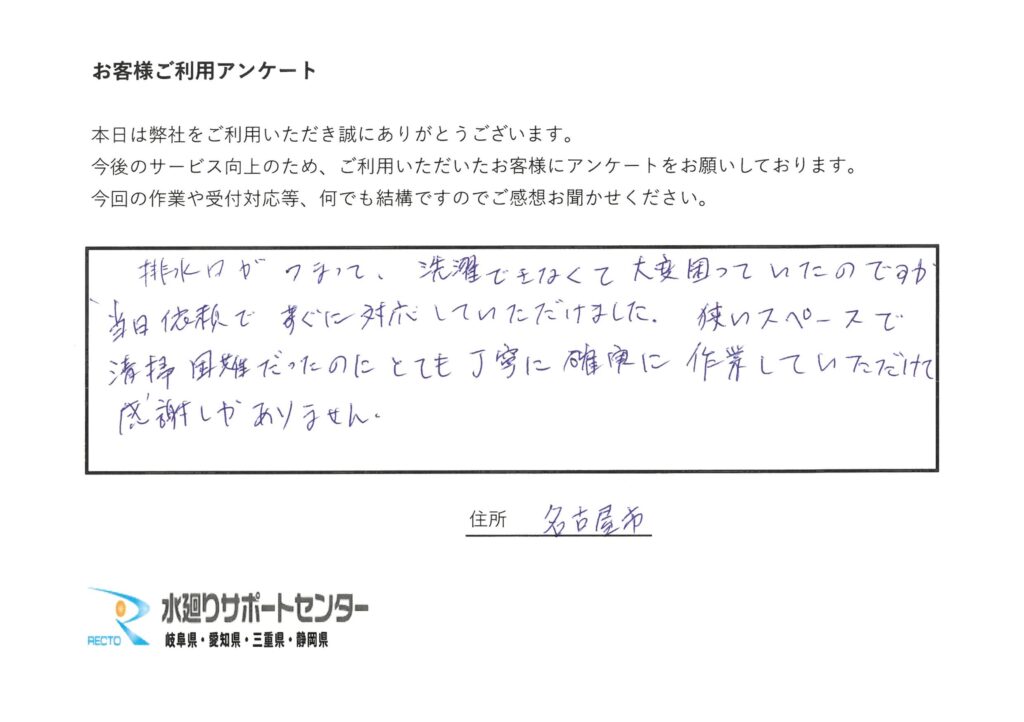 お客様ご利用アンケート
本日は弊社をご利用いただき誠にありがとうございます。
今後のサービス向上のため、ご利用いただいたお客様にアンケートをお願いしております。
今回の作業や受付対応等、何でも結構ですのでご感想お聞かせください。
排水口がつまって、洗濯できなくて大変困っていたのですが
、当日依頼ですぐに対応していただけました。狭いスペースで
清掃困難だったのにとても丁寧に確実に作業していただけて
感謝しかありません。
住所 名古屋市
水廻りサポートセンター
RECTO 岐阜県・愛知県・三重県・静岡県